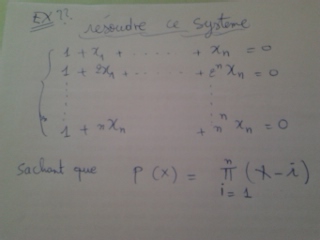 EX ??
résoudre ce système
1 + x₁ + ....... + xₙ = 0
1 + 2x₁ + ....... + 2ⁿ xₙ = 0
1 + n x₁ + nⁿ xₙ = 0
sachant que P(x) = ∏ⁿᵢ₌₁ (x - i)